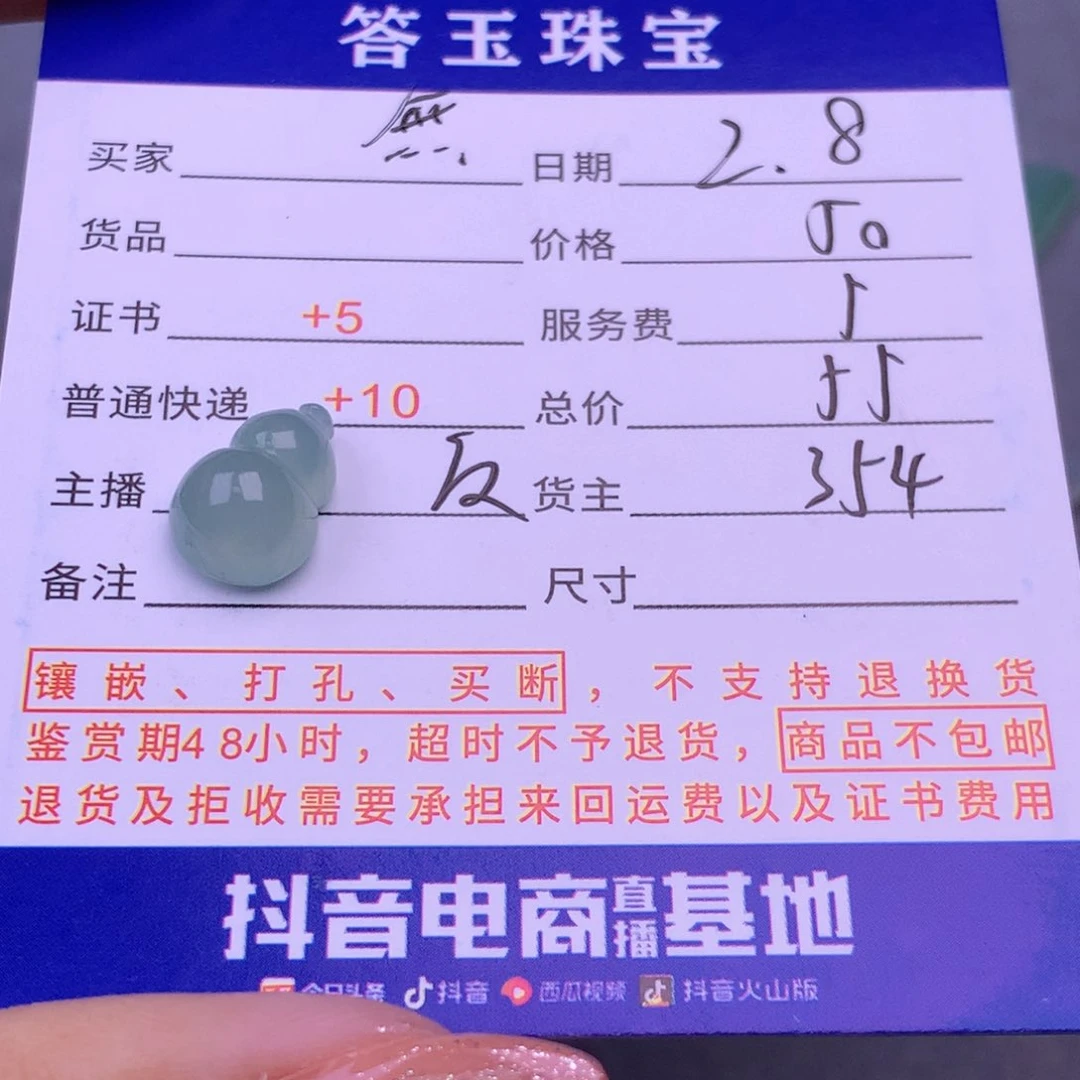 答玉珠宝
买家 無 日期 2.8
货品 价格 50
证书 +5 服务费 5
普通快递 +10 总价 55
主播 反 货主 354
备注 尺寸
镶嵌、打孔、买断，不支持退换货
鉴赏期48小时，超时不予退货，商品不包邮
退货及拒收需要承担来回运费以及证书费用
抖音电商直播基地
今日头条 抖音 西瓜视频 抖音火山版